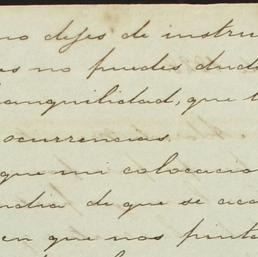 no dejes de instru
es no puedes dud
tranquilidad, que t
ocurrencias.
que mi colocacio
ndia de que se aca
en que nos pinta